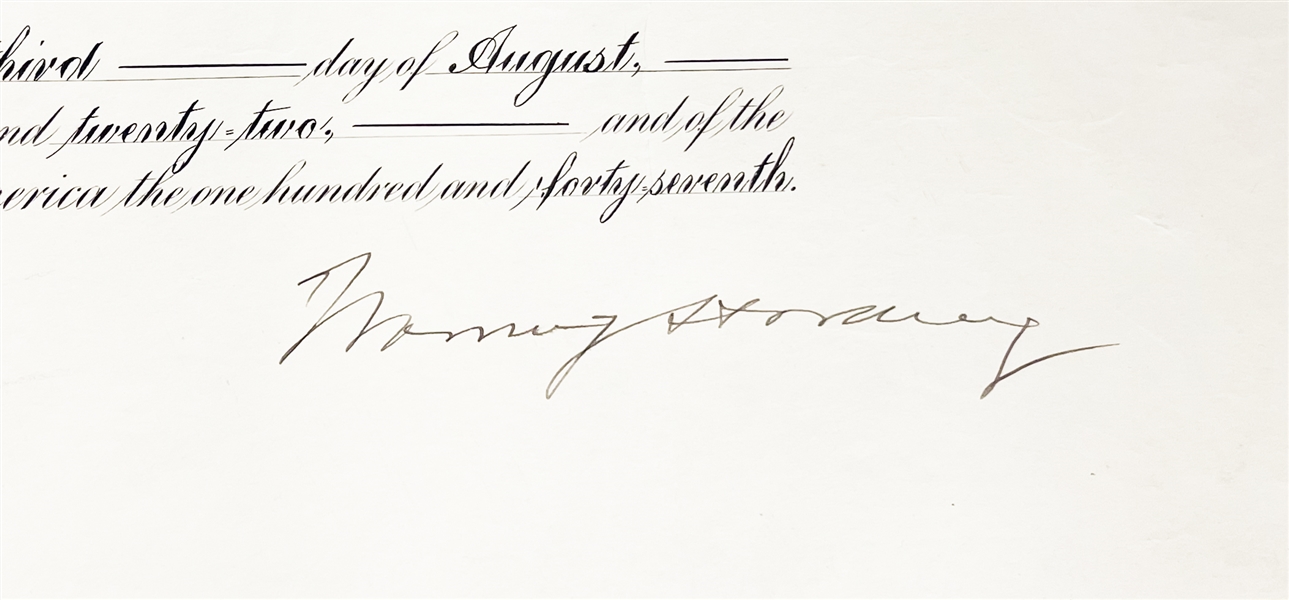 third day of August,
nd twenty-two, and of the
merica the one hundred and forty-seventh.
Warren G Harding